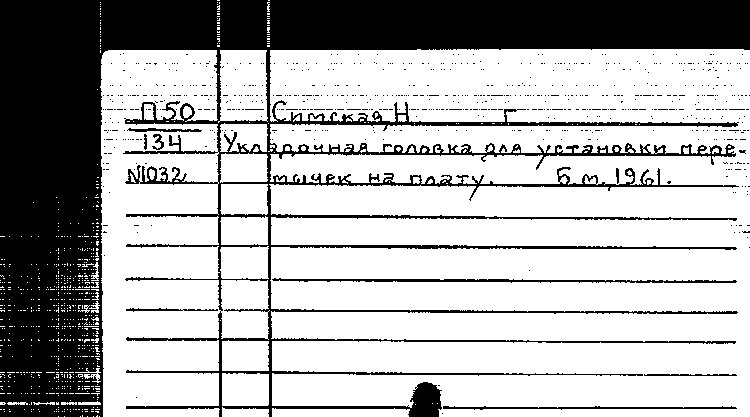 П50 Симская, Н Г
134 Укладочная головка для установки пере-
N1032 мычек на плату. Б.м., 1961.